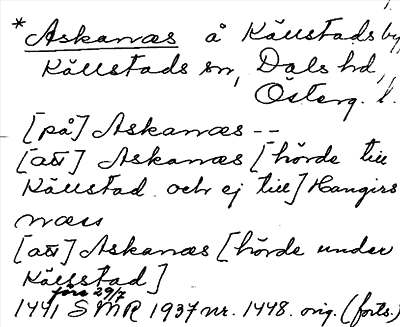 *Askanæs å Källstads by,
Källstads sn, Dals hd,
Österg. l.
[på] Askanæs --
[att] Askanæs [hörde till
Källstad och ej till] Hangirs
næss
[att] Askanæs [hörde under
Källstad]
före 29/7
1441 SMR 1937 nr. 1448. orig. (forts.)